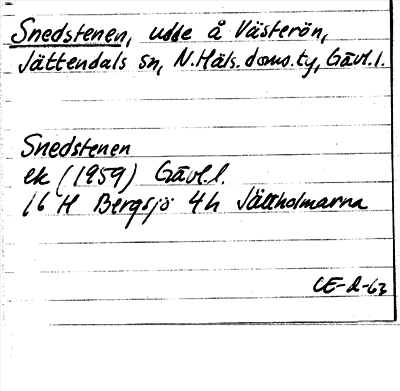 Snedstenen, udde å Västerön,
Jättendals sn, N. Häls. doms. ty, Gävl. l.
Snedstenen
ek (1959) Gävl. l.
16 H Bergsjö 4 h Jättholmarna